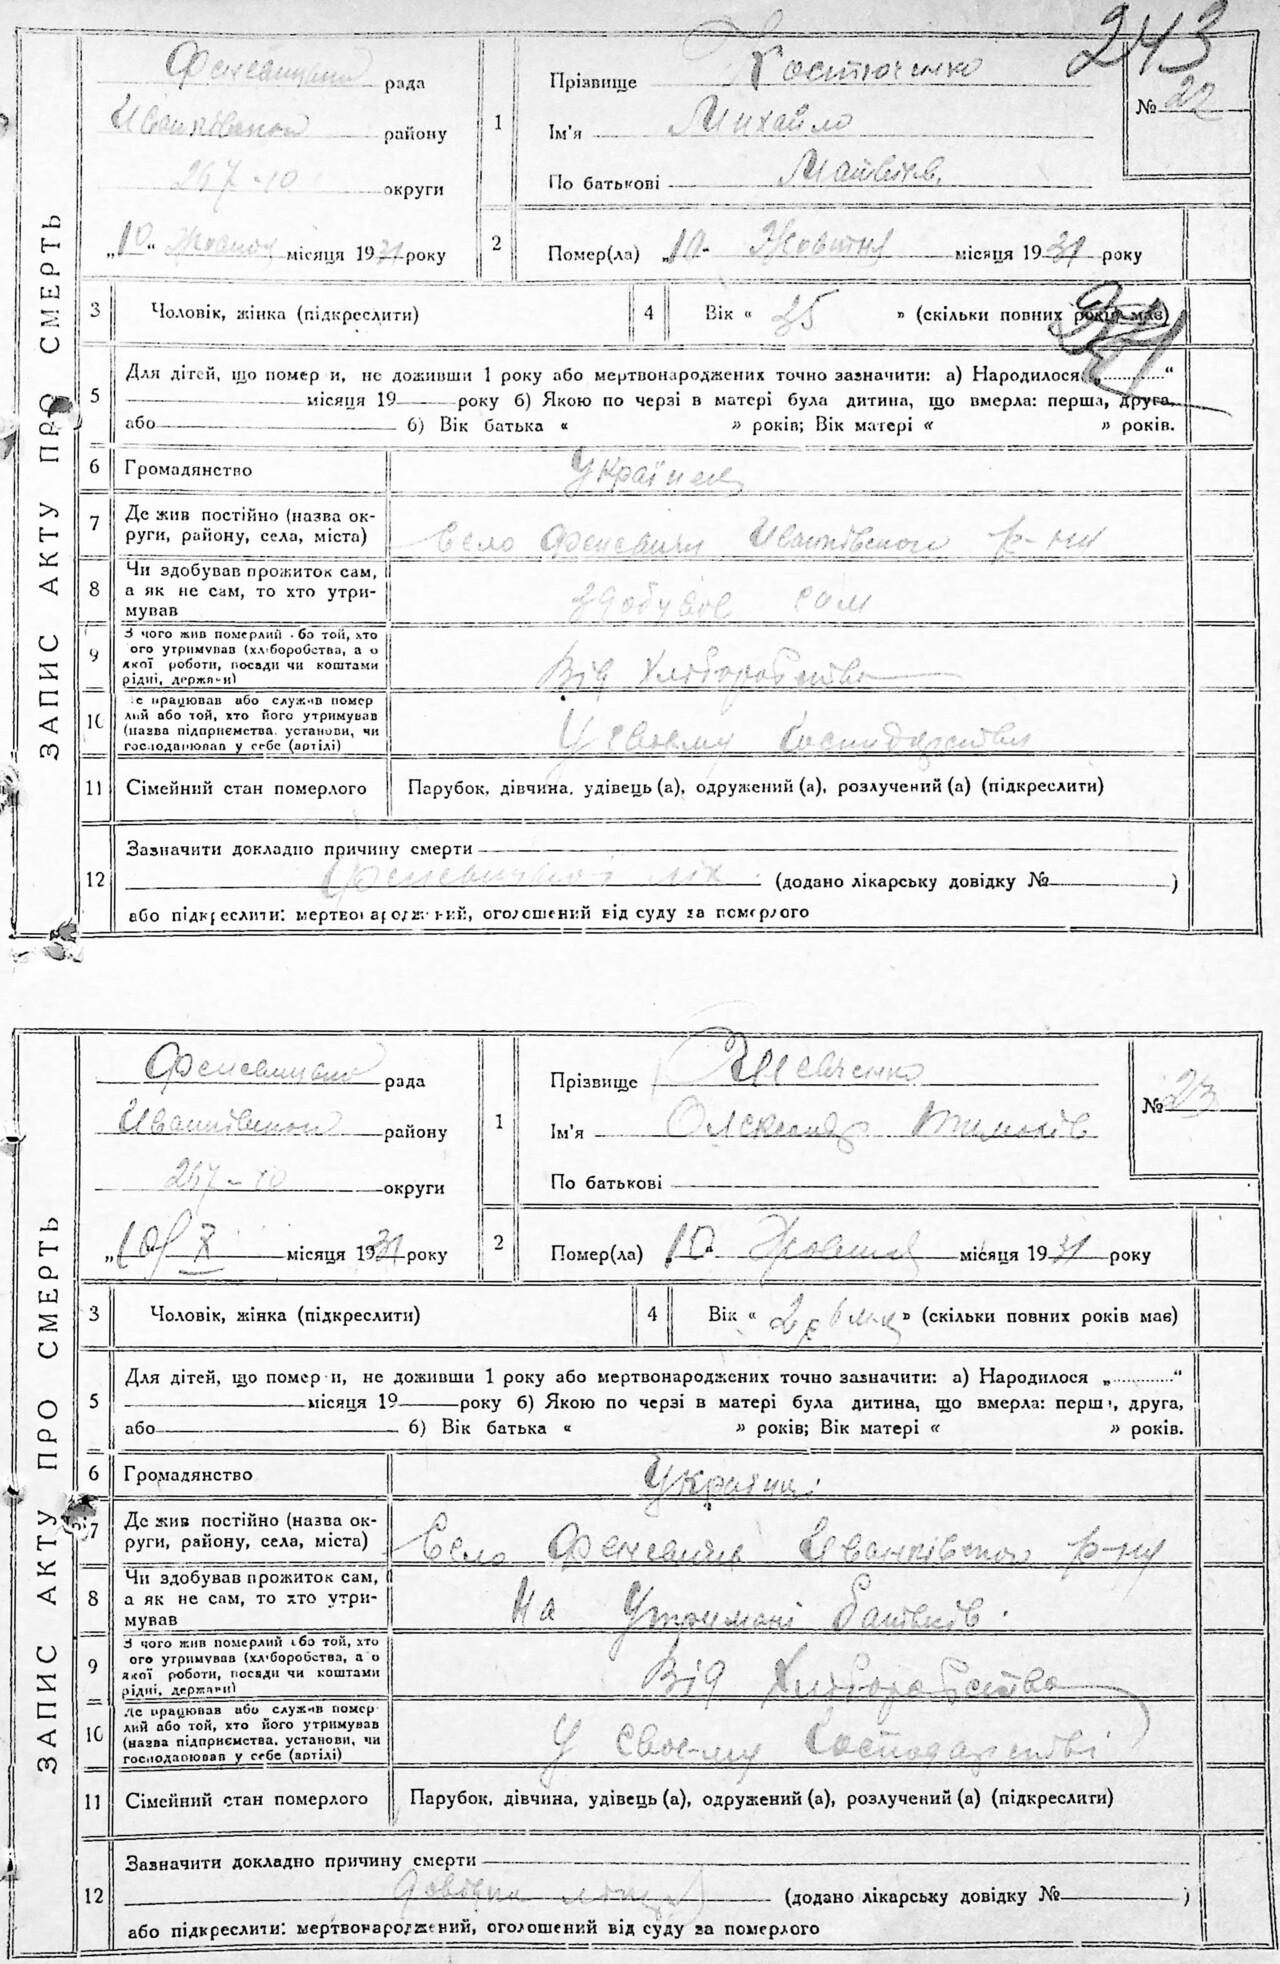 243
ЗАПИС АКТУ ПРО СМЕРТЬ
Феневицька рада
Иванківськой району
267-10 округи
„10" Жовтня місяця 1931 року
1
Прізвище Костюченко
Ім'я Михайло
По батькові Матвіїв
№ 22
2
Помер(ла) „10" Жовтня місяця 1931 року
3 Чоловік, жінка (підкреслити)
4 Вік « 35 » (скільки повних років має)
5 Для дітей, що померли, не доживши 1 року або мертвонароджених точно зазначити: а) Народилося „ "
місяця 19 року б) Якою по черзі в матері була дитина, що вмерла: перша, друга,
або б) Вік батька « » років; Вік матері « » років.
6 Громадянство Українец
7 Де жив постійно (назва ок-
руги, району, села, міста) Село Феневичи Иванківськой р-ни
8 Чи здобував прожиток сам,
а як не сам, то хто утри-
мував здобував сам
9 З чого жив померлий або той, хто
його утримував (хліборобства, а о
якої роботи, посади чи коштами
рідні, держави) Від Хліборобства
10 Де працював або служив помер
лий або той, хто його утримував
(назва підприємства, установи, чи
господарював у себе (артілі) У своему Господарстви
11 Сімейний стан померлого Парубок, дівчина, удівець (а), одружений (а), розлучений (а) (підкреслити)
12 Зазначити докладно причину смерти
(додано лікарську довідку № )
або підкреслити: мертвонароджений, оголошений від суду за померлого
ЗАПИС АКТУ ПРО СМЕРТЬ
Феневицька рада
Иванківськой району
267-10 округи
„10" X місяця 1931 року
1
Прізвище Шевченко
Ім'я Олександр Тимохів
По батькові
№ 23
2
Помер(ла) „10" Жовтня місяця 1931 року
3 Чоловік, жінка (підкреслити)
4 Вік « 2 р 6 м-ц » (скільки повних років має)
5 Для дітей, що померли, не доживши 1 року або мертвонароджених точно зазначити: а) Народилося „ "
місяця 19 року б) Якою по черзі в матері була дитина, що вмерла: перша, друга,
або б) Вік батька « » років; Вік матері « » років.
6 Громадянство Україна
7 Де жив постійно (назва ок-
руги, району, села, міста) Село Феневичи Иванківськой р-ни
8 Чи здобував прожиток сам,
а як не сам, то хто утри-
мував На Утримані батьків.
9 З чого жив померлий або той, хто
його утримував (хліборобства, а о
якої роботи, посади чи коштами
рідні, держави) Від Хліборобства
10 Де працював або служив помер
лий або той, хто його утримував
(назва підприємства, установи, чи
господарював у себе (артілі) У своему Господарстві
11 Сімейний стан померлого Парубок, дівчина, удівець (а), одружений (а), розлучений (а) (підкреслити)
12 Зазначити докладно причину смерти
(додано лікарську довідку № )
або підкреслити: мертвонароджений, оголошений від суду за померлого